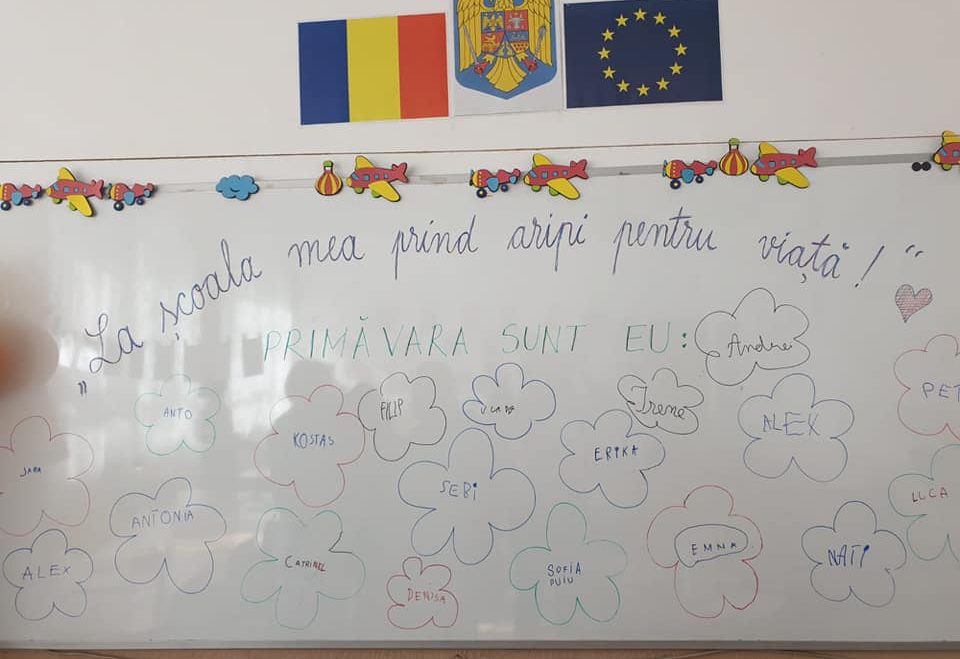 „La școala mea prind aripi pentru viață!“
PRIMĂVARA SUNT EU:
Andrei
ANTO
KOSTAS
FILIP
Irene
ALEX
PET
JARA
ANTONIA
SEBI
ERIKA
LUCA
ALEX
CATRINEL
DENISA
SOFIA
PUIU
EMMA
NATI